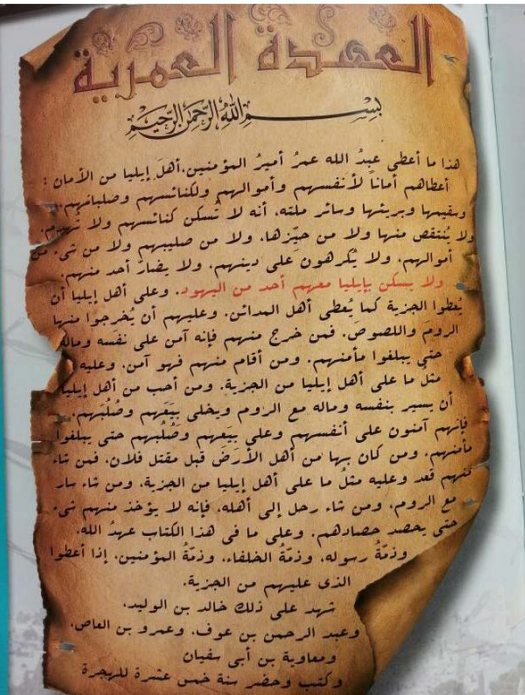 العهدة العمرية
بسم الله الرحمن الرحيم
هذا ما أعطى عبدُ الله عمرُ أميرُ المؤمنين، أهلَ إيليا من الأمان :
أعطاهم أماناً لأنفسهم وأموالهم ولكنائسهم وصلبانهم،
وسقيمها وبريئها وسائر ملته، أنه لا تُسكن كنائسهم ولا تُهدم،
ولا يُنتقص منها ولا من حيّزها، ولا من صليبهم ولا من شىء من
أموالهم، ولا يُكرهون على دينهم، ولا يضارّ أحد منهم،
ولا يسكن بإيليا معهم أحد من اليهود، وعلى أهل إيليا أن
يُعطوا الجزية كما يُعطى أهل المدائن، وعليهم أن يُخرجوا منها
الروم واللصوص، فمن خرج منهم فإنه آمن على نفسه وماله
حتى يبلغوا مأمنهم، ومن أقام منهم فهو آمن، وعليه
مثل ما على أهل إيليا من الجزية، ومن أحب من أهل إيليا
أن يسير بنفسه وماله مع الروم ويخلى بيَعَهم وصُلُبَهم،
فإنهم آمنون على أنفسهم وعلى بيَعهم وصُلُبهم حتى يبلغوا
مأمنهم، ومن كان بها من أهل الأرض قبل مقتل فلان، فمن شاء
منهم قعد وعليه مثلُ ما على أهل إيليا من الجزية، ومن شاء سار
مع الروم، ومن شاء رحل إلى أهله، فإنه لا يؤخذ منهم شىء
حتى يحصد حصادهم، وعلى ما فى هذا الكتاب عهدُ الله،
وذمّةُ رسوله، وذمّةُ الخلفاء، وذمّةُ المؤمنين، إذا أعطوا
الذى عليهم من الجزية،
شهد على ذلك خالد بن الوليد،
وعبد الرحمن بن عوف، وعمرو بن العاص،
ومعاوية بن أبى سفيان
وكتب وحضر سنة خمس عشرة للهجرة